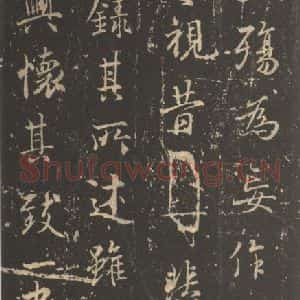 殤為妄作
視昔悲
錄其所述雖
興懷其致一也
Shufawang.CN